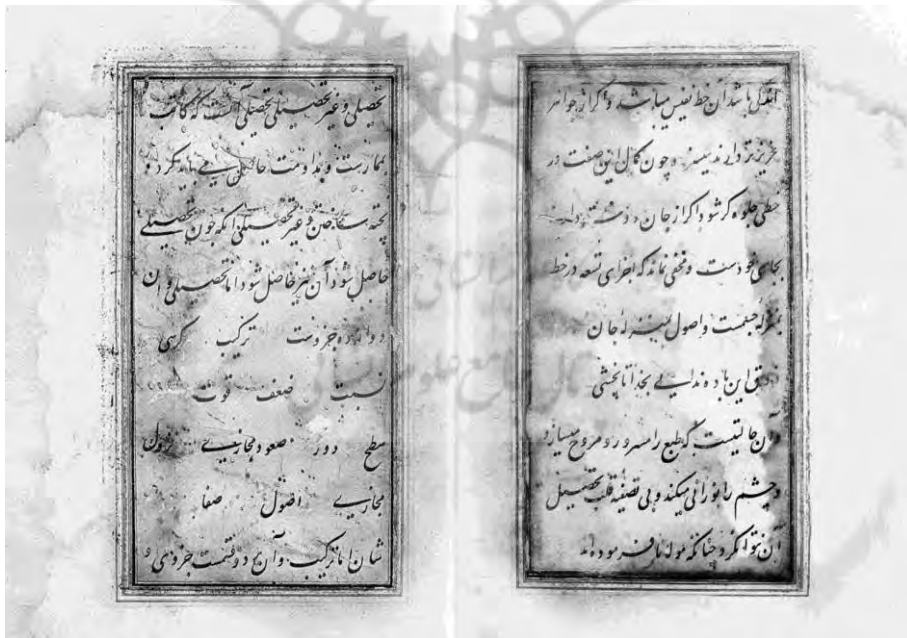 اندک باشد آن خط نفیس میباشد و اگر از جواهر
عزیزتر دارند میسزد و چون کمال این صفت در
خطی جلوه گر شود اگر از جان دوست
بجای خودست و مخفی نماند که اجزای تسعه در خط
بمنزله جسمست و اصول بمنزله جان
ذوق این باده ندانی بخدا تا نچشی
و آن حالتیست که طبع را مسرور و مروح میسازد
و چشم را نورانی میکند و بی تصفیه قلب تحصیل
آن نتوان کرد چنانکه مولانا فرموده اند
تحصیلی و غیر تحصیلی تحصیلی آنست که کاتب
بممارست و مداومت حاصل می باید کرد و
ساختن و غیر تحصیلی آنکه چون تحصیلی
حاصل شود آن نیز حاصل شود اما تحصیلی و آن
دوازده جزوست ترکیب کرسی
نسبت ضعف قوت
سطح دور صعود مجازی نزول
مجازی اصول صفا
شان اما ترکیب و آن بر دو قسمت جزوی و